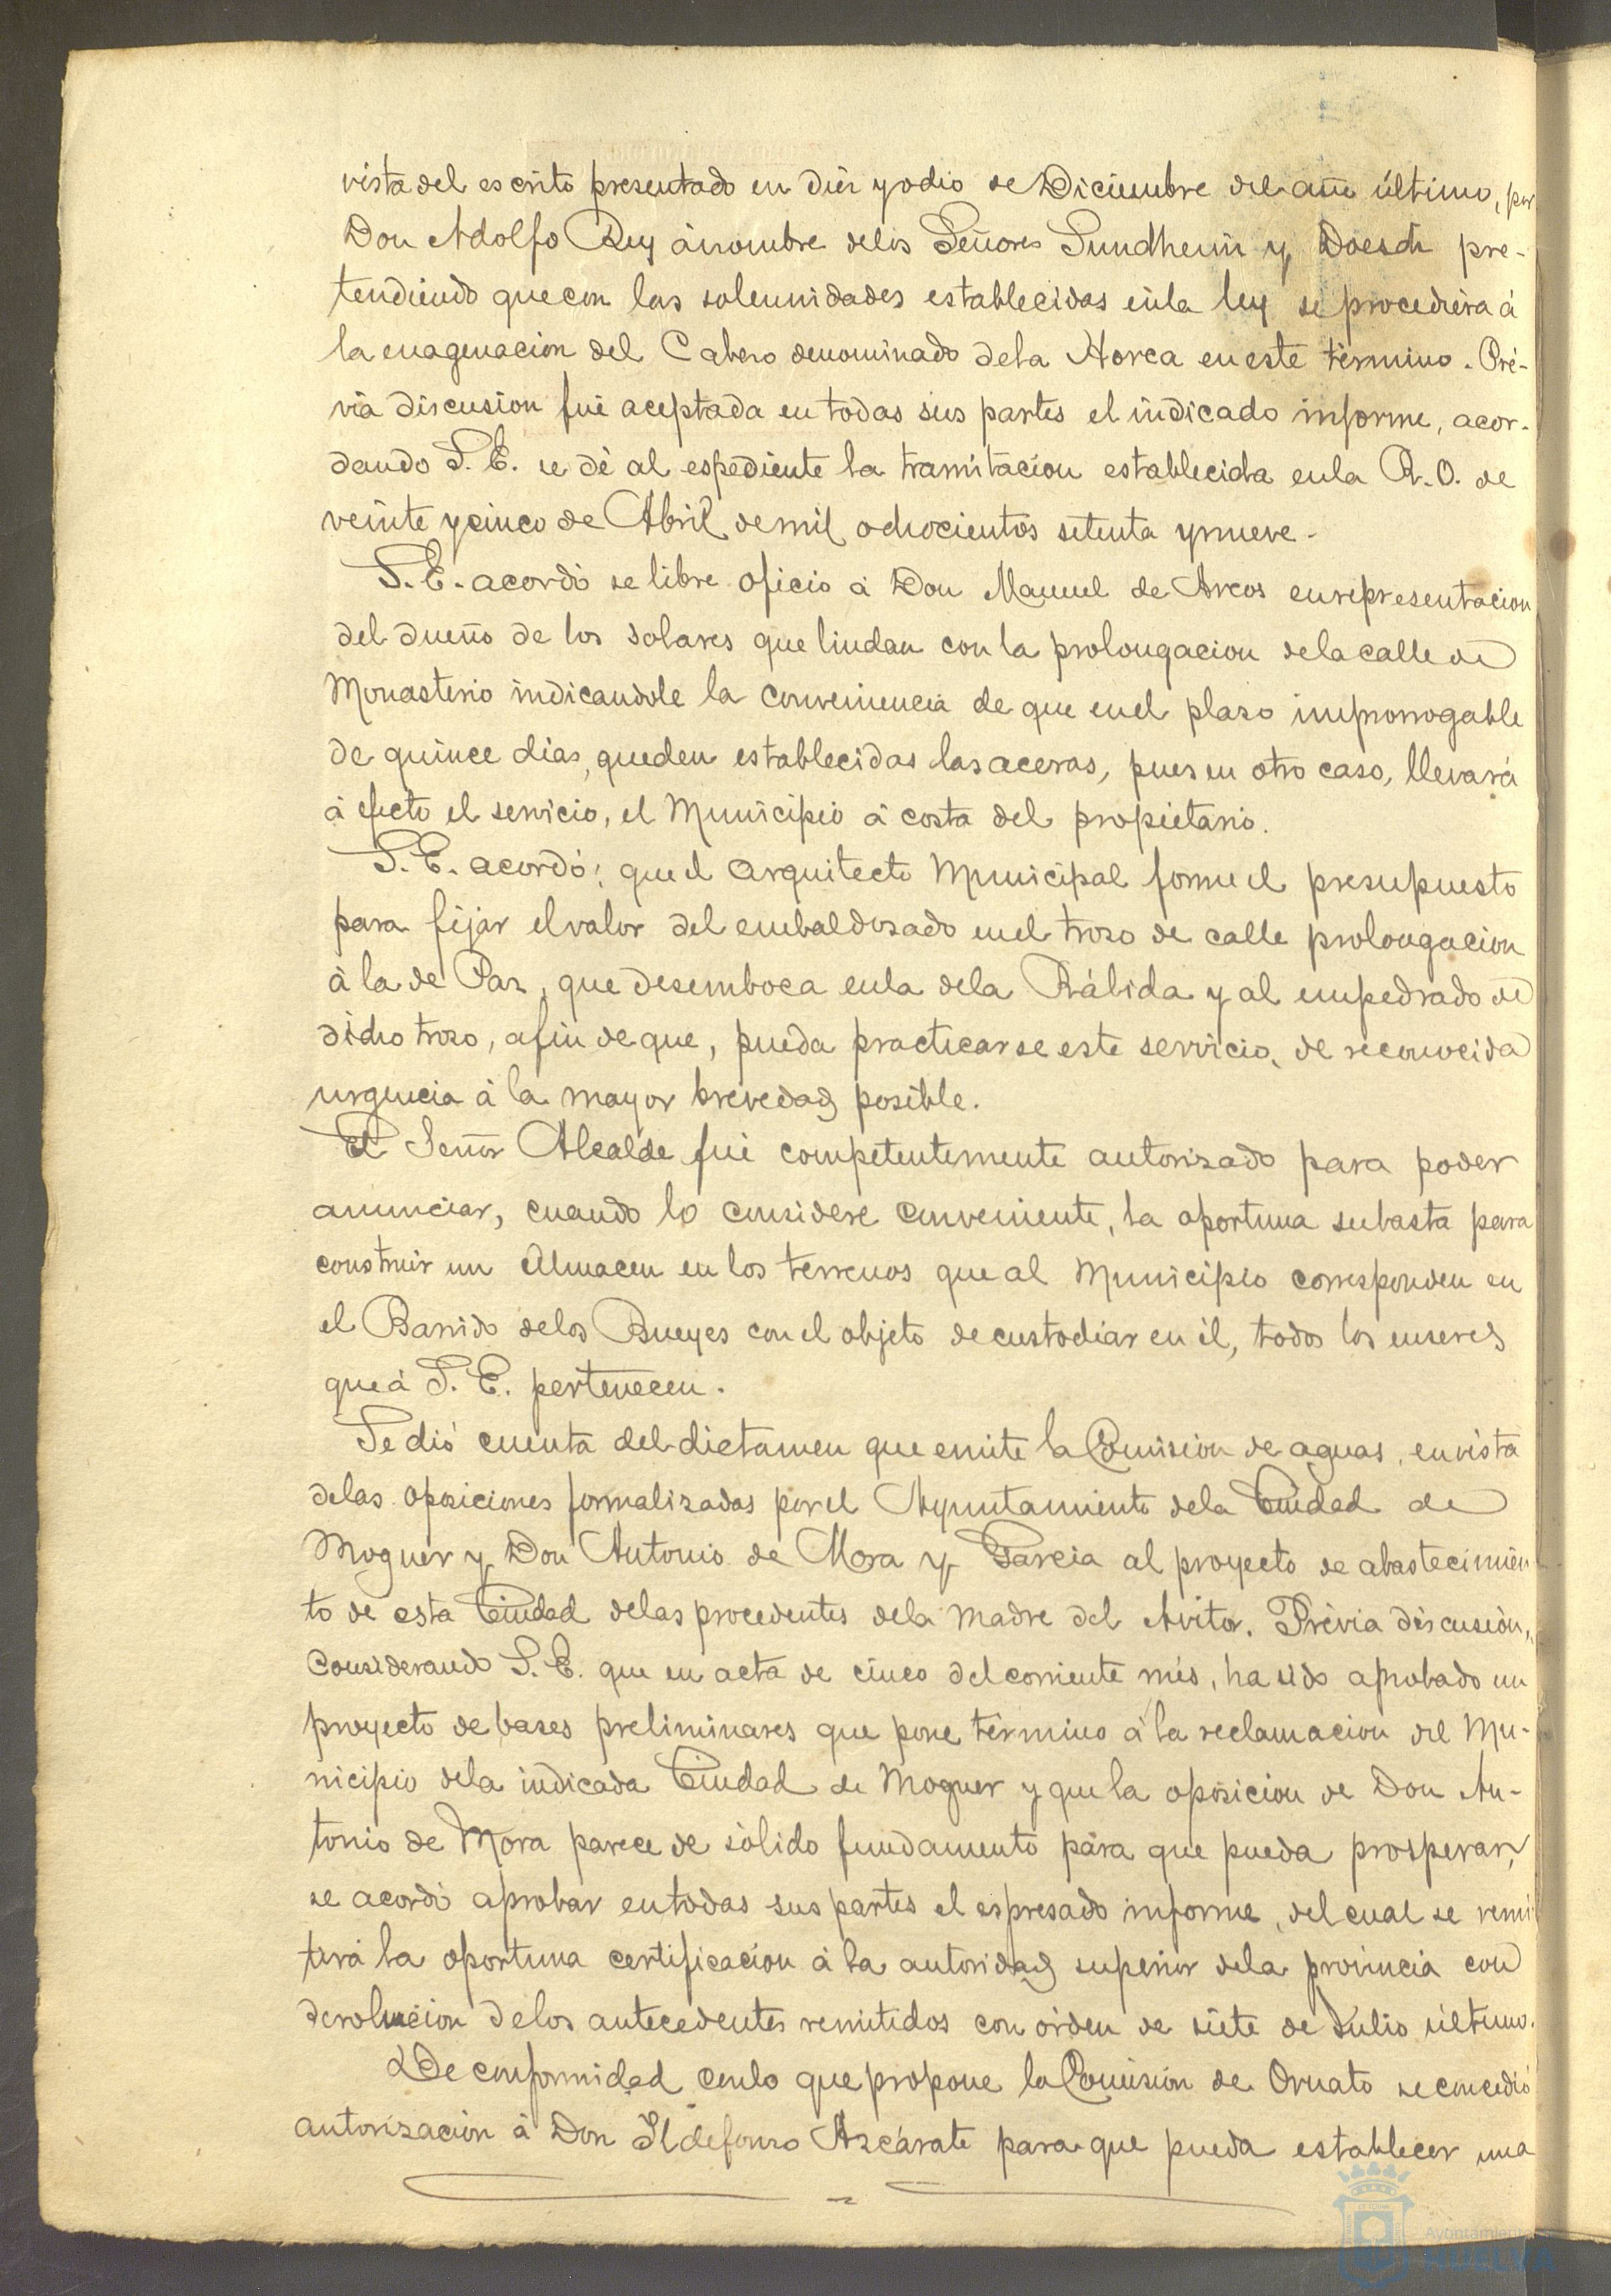 vista del escrito presentado en diez y ocho de Diciembre del año último, por
Don Adolfo Rey á nombre de los Señores Sundheim y Doesch pre-
tendiendo que con las solemnidades establecidas en la ley se procediera á
la enagenacion del Cabezo denominado de la Horca en este término. Pré-
via discusion fué aceptada en todas sus partes el indicado informe, acor-
dando S. E. se dé al espediente la tramitacion establecida en la R. O. de
veinte y cinco de Abril de mil ochocientos setenta y nueve.
S. E. acordó se libre oficio á Don Manuel de Arcos en representacion
del dueño de los solares que lindan con la prolongacion de la calle de
Monasterio indicandole la conveniencia de que en el plazo improrrogable
de quince dias, queden establecidas las aceras, pues en otro caso, llevará
á efecto el servicio, el Municipio á costa del propietario.
S. E. acordó: que el Arquitecto Municipal forme el presupuesto
para fijar el valor del embaldosado en el trozo de calle prolongacion
á la de Paz, que desemboca en la de la Rábida y al empedrado de
dicho trozo, á fin de que, pueda practicarse este servicio, de reconocida
urgencia á la mayor brevedad posible.
El Señor Alcalde fué competentemente autorizado para poder
anunciar, cuando lo considere conveniente, la oportuna subasta para
construir un Almacen en los terrenos que al Municipio corresponden en
el Barrido de los Bueyes con el objeto de custodiar en él, todos los enseres
que á S. E. pertenecen.
Se dió cuenta del dictamen que emite la Comision de aguas, en vista
de las oposiciones formalizadas por el Ayuntamiento de la Ciudad de
Moguer y Don Antonio de Mora y Garcia al proyecto de abastecimien
to de esta Ciudad de las procedentes de la Madre del Avitor. Prévia discusion,
considerando S. E. que en acta de cinco del corriente mes, ha sido aprobado un
proyecto de bases preliminares que pone término á la reclamacion del Mu-
nicipio de la indicada Ciudad de Moguer y que la oposicion de Don An-
tonio de Mora parece de sólido fundamento para que pueda prosperar,
se acordó aprobar en todas sus partes el espresado informe, del cual se remi
tirá la oportuna certificacion á la autoridad superior de la provincia con
devolucion de los antecedentes remitidos con órden de siete de Julio último.
De conformidad con lo que propone la Comision de Ornato se concedió
autorizacion á Don Ildefonso Azcárate para que pueda establecer una
Ayuntamiento
HUELVA